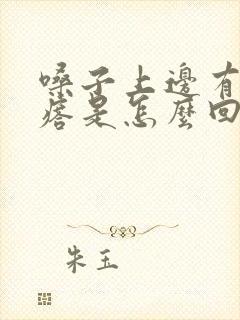 嗓子上邊有
瘩是怎麼回
朱玉